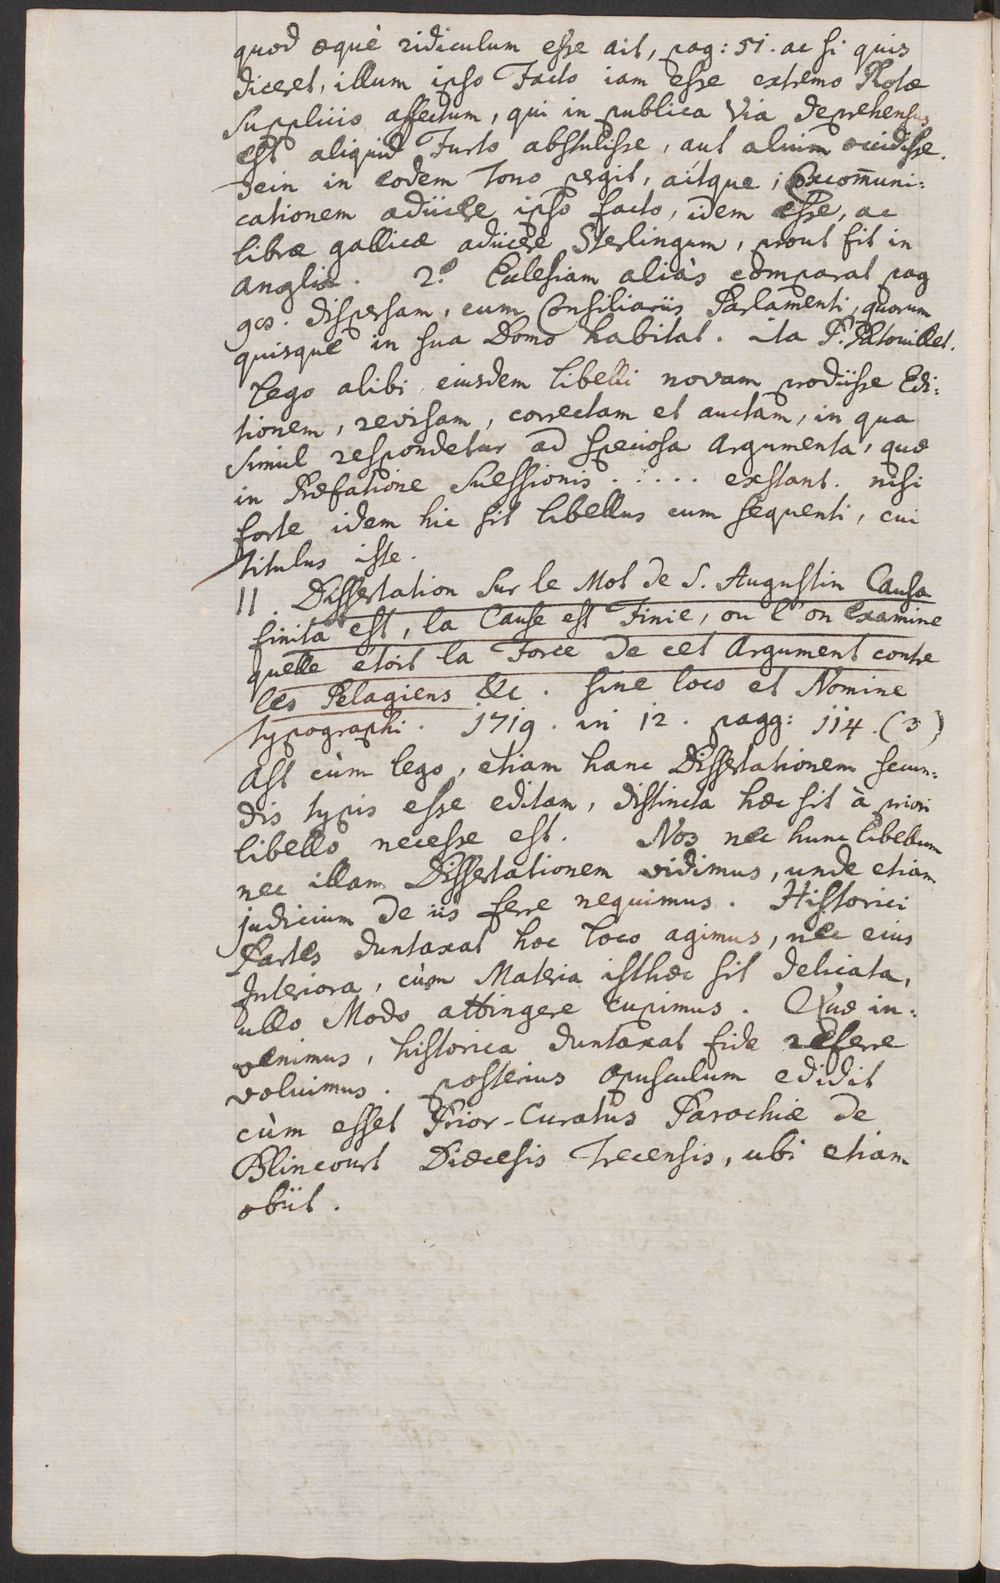 quod æquè ridiculum esse ait, pag: 51. ac si quis
diceret, illum ipso Facto iam esse extremo Rotæ
Supplicio affectum, qui in publica Via deprehensus
est aliquid Furto abstulisse, aut alium occidisse.
Dein in eodem Tono pergit, aitque; Excom̄uni:
cationem adiicere ipso facto, idem esse, ac
libræ gallicæ adiicere Sterlingum, prout fit in
Anglia. 2.° Ecclesiam aliàs comparat pag
90. dispersam, cum Consiliariis Parlamenti, quorum
quisque in sua Domo habitat. ita P. Patouillet.
Lego alibi eiusdem libelli novam prodiisse Edi:
tionem, revisam, correctam et auctam, in qua
simul respondetur ad speciosa Argumenta, quæ
in Præfatione Suessionis . . . . . exstant. nisi
forte idem hic sit libellus cum sequenti, cui
titulus iste.
11. Dissertation sur le Mot de S. Augustin Causa
finita est, la Cause est Finie, ou l'on Examine
quelle etoit la Force de cet Argument contre
les Pelagiens &c. sine loco et Nomine
typographi. 1719. in 12. pagg: 114. (3)
Ast cùm lego, etiam hanc Dissertationem secun:
dis typis esse editam, distincta hæc sit à priori
libello necesse est. Nos nec hunc libellum
nec illam Dissertationem vidimus, unde etiam
judicium de iis ferre nequimus. Historici
Partes duntaxat hoc loco agimus, nec eius
Interiora, cùm Materia isthæc sit delicata,
ullo Modo attingere cupimus. Quæ in:
venimus, historica duntaxat fide referre
voluimus. posterius opusculum edidit
cùm esset Prior-Curatus Parochiæ de
Blincourt Diœcesis Trecensis, ubi etiam
obiit.